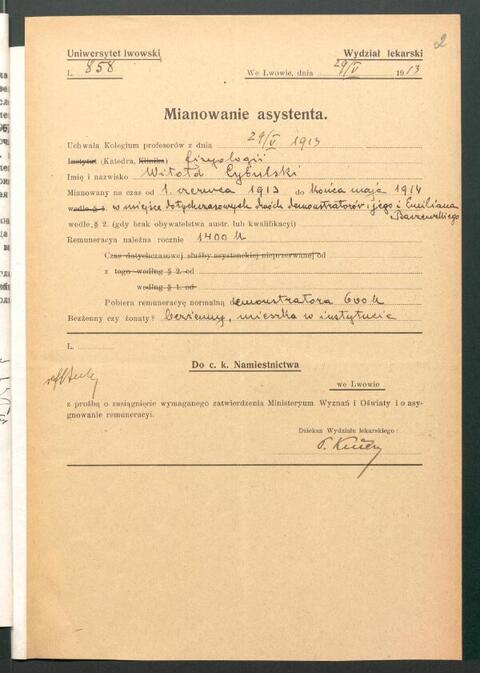 2
Uniwersytet lwowski Wydział lekarski
L. 858 We Lwowie, dnia 29/V 1913
Mianowanie asystenta.
Uchwała Kolegium profesorów z dnia 29/V 1913
Instytut (Katedra, Klinika) fizyologii
Imię i nazwisko Witold Cybulski
Mianowany na czas od 1. czerwca 1913 do końca maja 1914
wedle § 1. w miejsce dotychczasowych dwóch demonstratorów: jego i Emiliana
wedle § 2. (gdy brak obywatelstwa austr. lub kwalifikacyi)
Remuneracya należna rocznie 1400 k
Czas dotychczasowej służby asystenckiej nieprzerwanej od
z tego według § 2. od
według § 1. od
Pobiera remuneracyę normalną demonstratora 600 k
Bezżenny czy żonaty? bezżenny, mieszka w instytucie
L.
Do c. k. Namiestnictwa
we Lwowie
z prośbą o zasiągnięcie wymaganego zatwierdzenia Ministeryum Wyznań i Oświaty i o asy-
gnowanie remuneracyi.
Dziekan Wydziału lekarskiego: